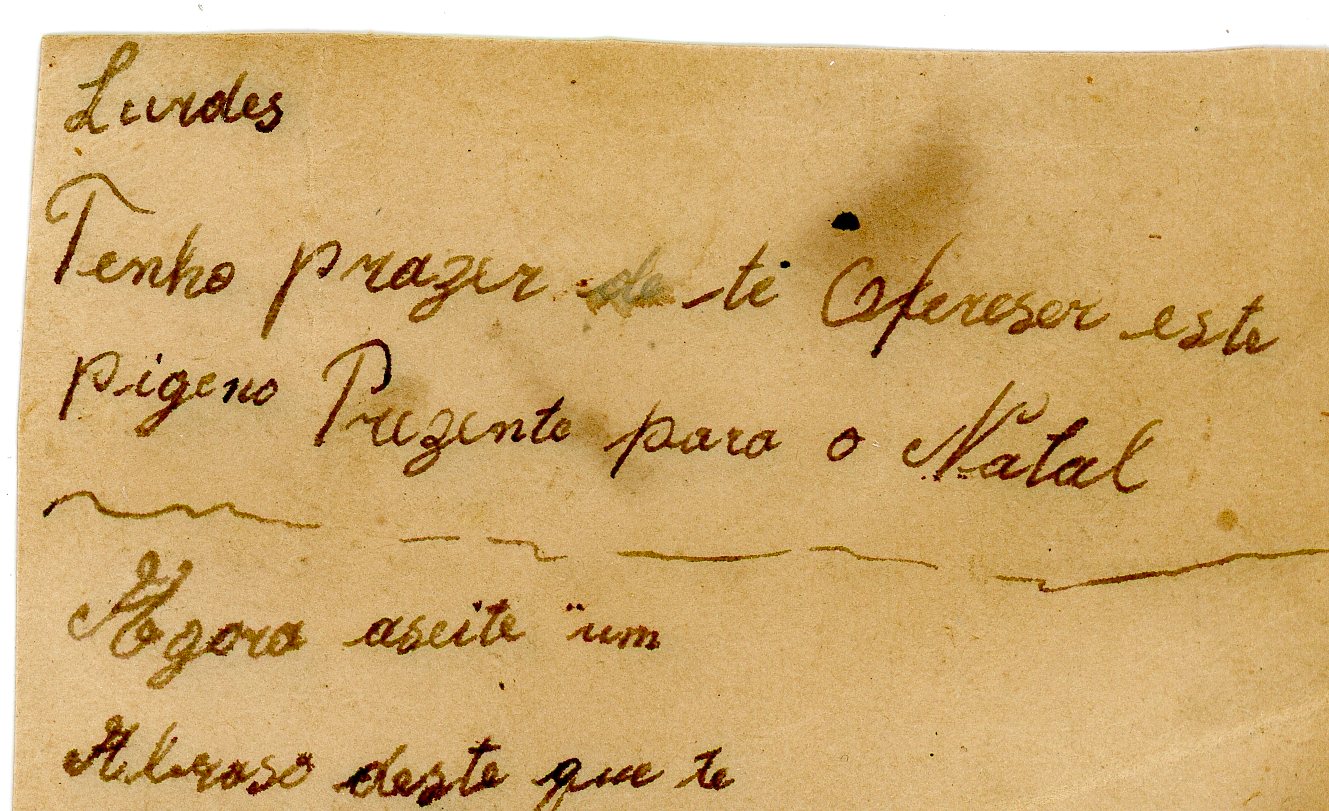 Lurdes
Tenho prazer de te Ofereser este
pigeno Prezente para o Natal
Agora aseite um
Abraso deste que te